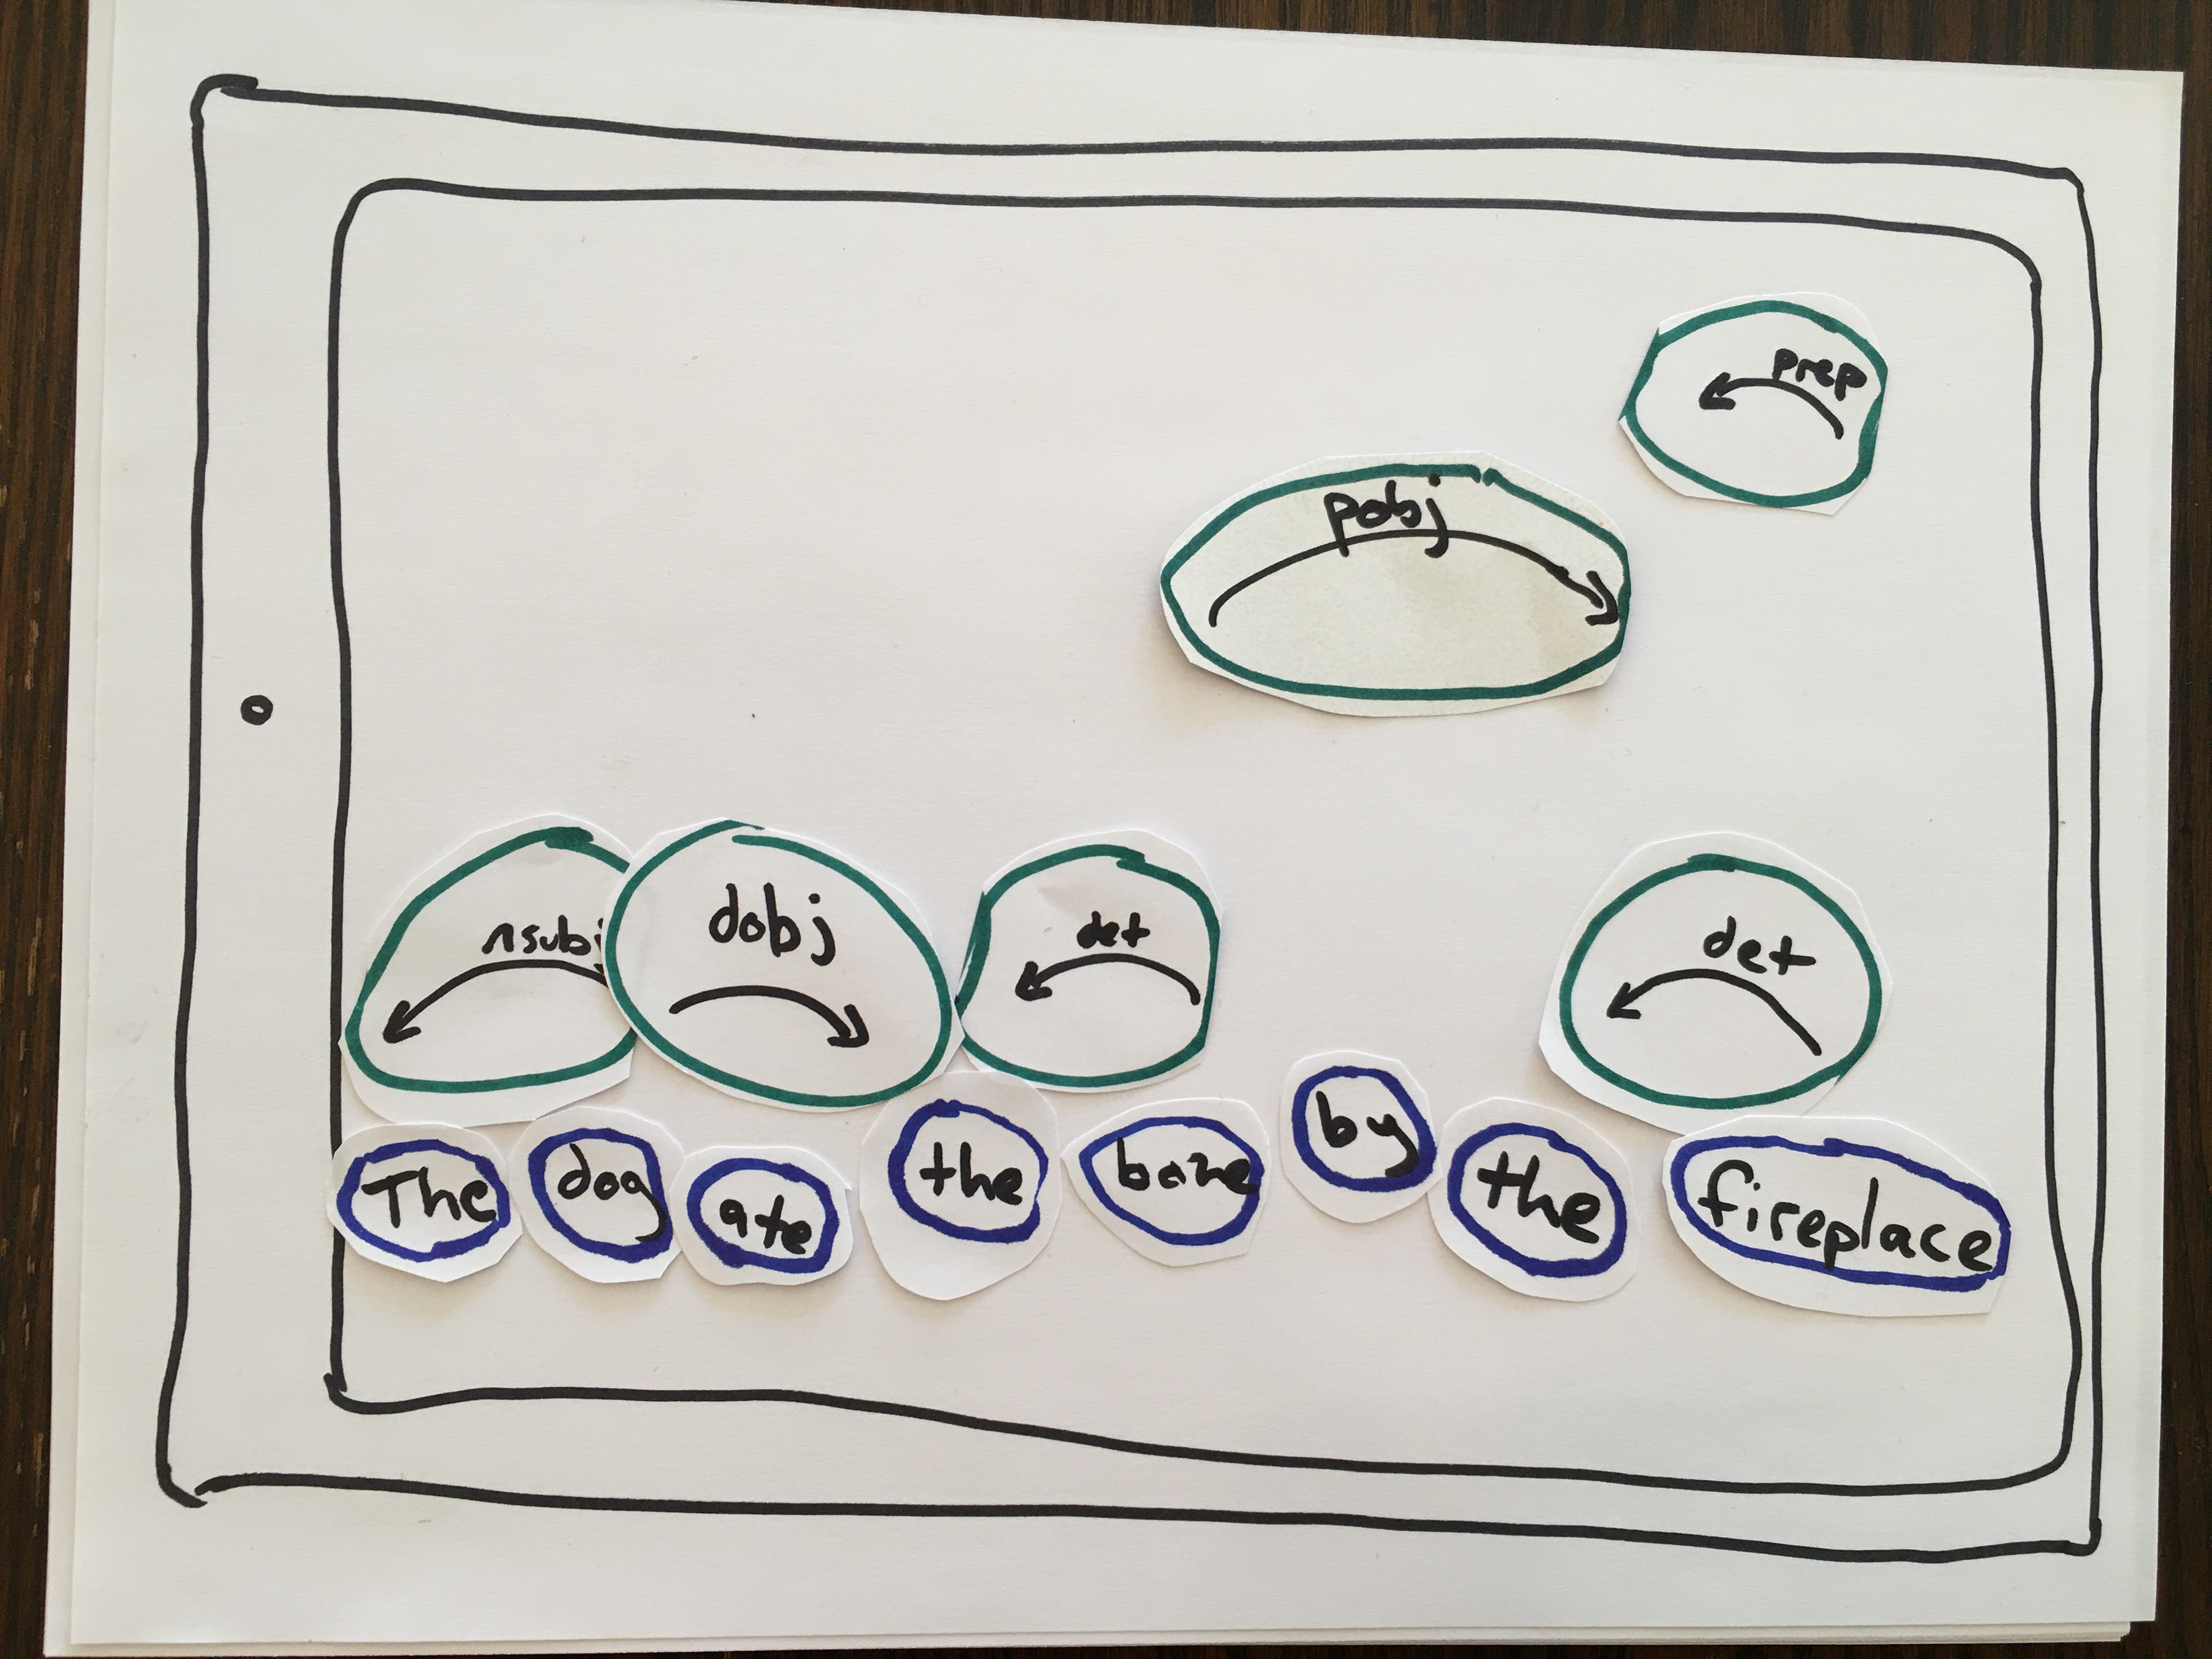 prep
pobj
nsubj dobj det det
The dog ate the bone by the fireplace